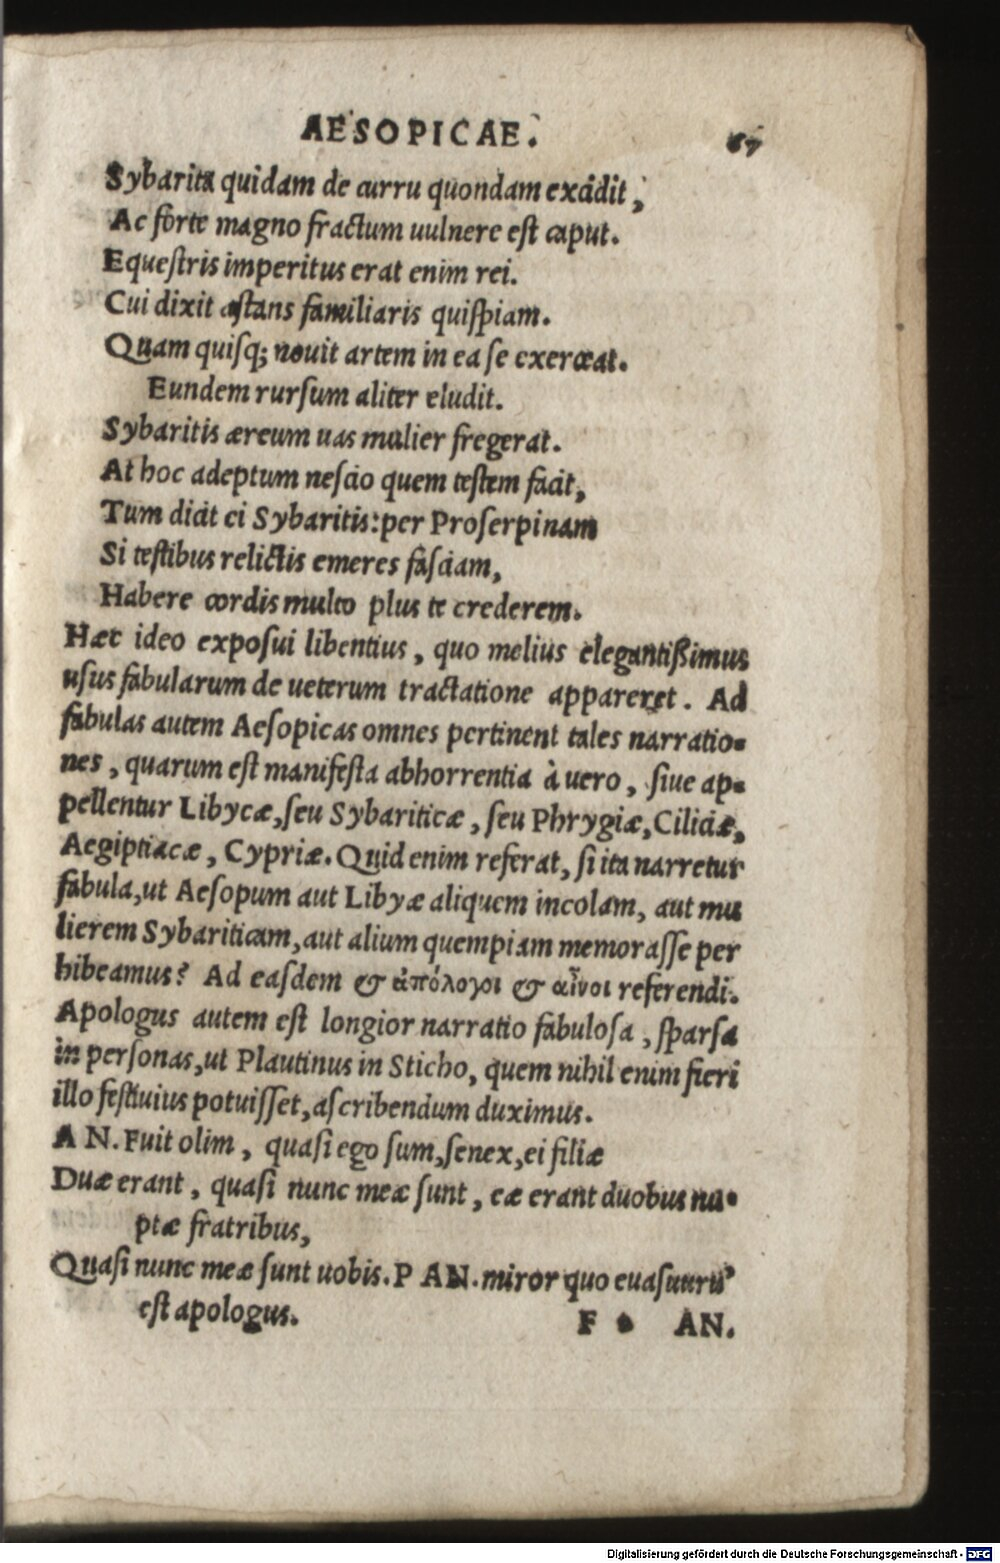 AESOPICAE. 67
Sybarita quidam de curru quondam excidit,
Ac forte magno fractum uulnere est caput.
Equestris imperitus erat enim rei.
Cui dixit astans familiaris quispiam.
Quam quisq; nouit artem in ea se exerceat.
Eundem rursum aliter eludit.
Sybaritis æreum uas mulier fregerat.
At hoc adeptum nescio quem testem facit,
Tum dicit ei Sybaritis: per Proserpinam
Si testibus relictis emeres fasciam,
Habere cordis multo plus te crederem.
Hæc ideo exposui libentius, quo melius elegantißimus
usus fabularum de ueterum tractatione appareret. Ad
fabulas autem Aesopicas omnes pertinent tales narratio-
nes, quarum est manifesta abhorrentia à uero, siue ap-
pellentur Libycæ, seu Sybariticæ, seu Phrygiæ, Ciliciæ,
Aegiptiacæ, Cypriæ. Quid enim referat, si ita narretur
fabula, ut Aesopum aut Libyæ aliquem incolam, aut mu
lierem Sybariticam, aut alium quempiam memorasse per
hibeamus? Ad easdem & ἀπόλογοι & αἶνοι referendi.
Apologus autem est longior narratio fabulosa, sparsa
in personas, ut Plautinus in Sticho, quem nihil enim fieri
illo festiuius potuisset, ascribendum duximus.
AN. Fuit olim, quasi ego sum, senex, ei filiæ
Duæ erant, quasi nunc meæ sunt, eæ erant duobus nu-
ptæ fratribus,
Quasi nunc meæ sunt uobis. PAN. miror quo euasuru'
est apologus.
F AN.
Digitalisierung gefördert durch die Deutsche Forschungsgemeinschaft - DFG